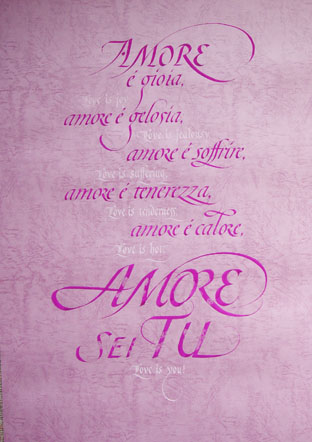 AMORE
é gioia,
Love is joy
amore é gelosia,
Love is jealousy
amore é soffrire,
Love is suffering,
amore é tenerezza,
Love is tenderness,
amore é calore,
Love is hot,
AMORE
SEI TU
Love is you!